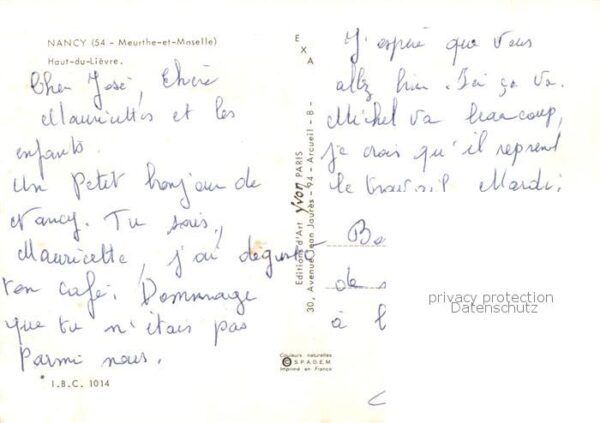 NANCY (54 - Meurthe-et-Moselle)
Haut-du-Lièvre.
Cher José, Chère
Mauricettes et les
enfants.
un Petit bonjour de
Nancy. Tu sais,
Mauricette, j'ai deguster
ton café. Dommage
que tu n'étais pas
Parmi nous.
I.B.C. 1014
EXA
Editions d'Art Yvon PARIS
30, Avenue Jean Jaurès - 94 - Arcueil - 8 -
Couleurs naturelles
© S.P.A.D.E.M.
Imprimé en France
J'espère que vous
allez bien. Ici ça va.
Michel va beaucoup,
je crois qu'il reprend
le travail Mardi.
Bo
de
à l
privacy protection
Datenschutz